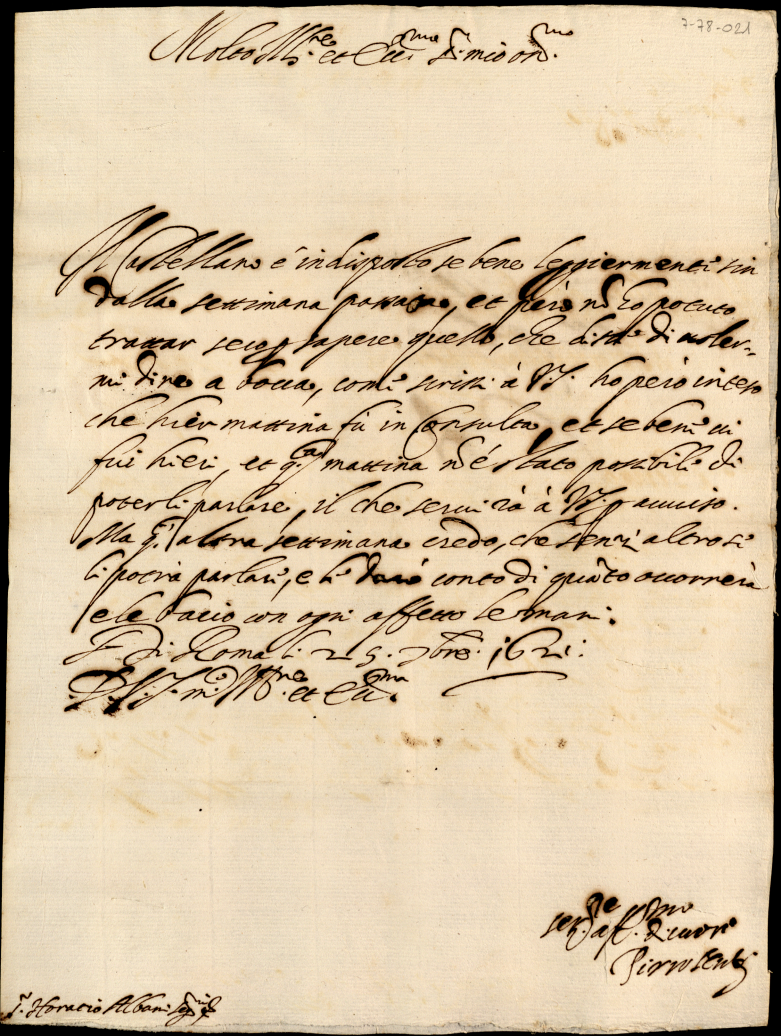 7-78-021
Molto Ill.re et Ecc.mo S.r mio oss.mo
Il Castellano è indisposto se bene leggiermente sin
dalla settimana passata, et però nõ ho potuto
trattar seco p sapere quello, che disse di voler-
mi dire a bocca, come scrissi à V.S. ho però inteso
che hier mattina fù in Consulta, et se bene vi
fui hieri, et q.ta mattina nõ è stato possibile di
poterli parlare, il che servirà à V.S. p avviso.
Ma q.st'altra settimana credo, che senz'altro se
li potrà parlare, e le darò conto di quãto occorrerà
e le bacio con ogni affetto le mani.
Di Roma li 25. 7bre. 1621.
D.V.S. m.to Ill.re et Ecc.ma
ser.re aff.mo di cuore
Pirro
S.r Horatio Albani